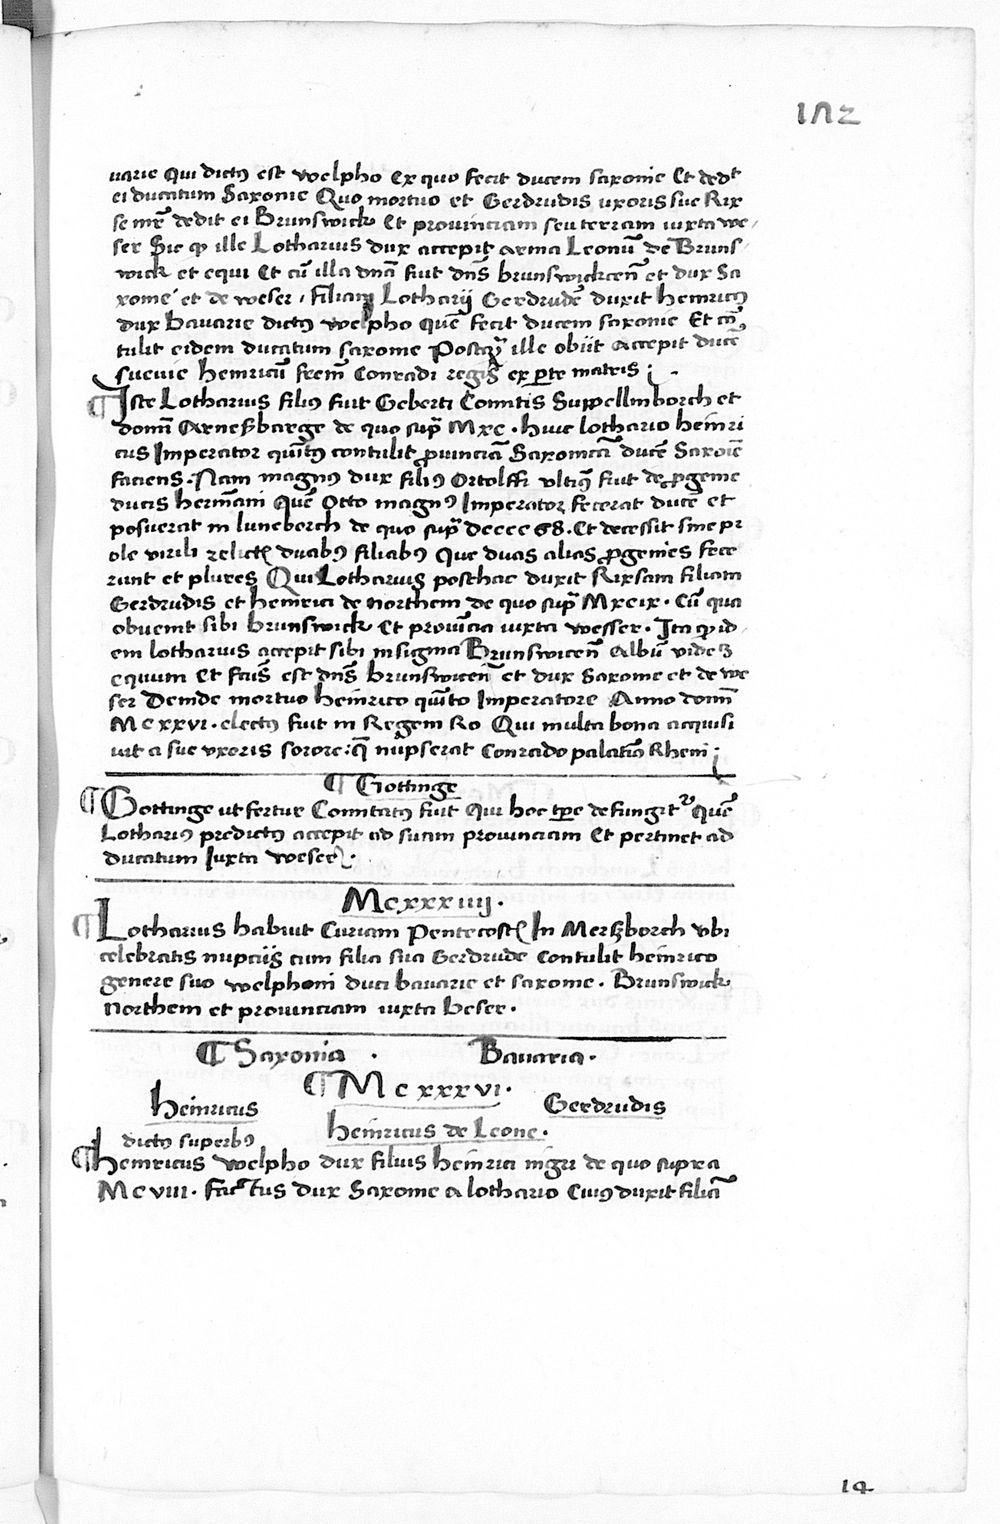 172
uarie Qui dictꝰ est welpho Ex quo fecit ducem saxonie Et dedᵗ
ei ducatum Saxonie Quo mortuo et Gerdrudis uxoris sue Rix
se mr̄e dedit ei Brunswick Et prouinciam seu terram iuxta we
ser Sic ꝙ ille Lotharius dux accepit arma Leonū de Bruns
wick et equi Et cū illa dn̄a fuit dn̄s brunswickcen̄ et dux Sa
xonie et de weser. filiam Lotharij Gerdrudē duxit heinricꝰ
dux bauarie dictꝰ welpho quē fecit ducem saxonie Et cō
tulit eidem ducatum saxonie Postqꝫ ille obijt Accepit ducē
sueuie heinricū frem̄ Conradi regis ex ꝑte matris ;
¶ Iste Lotharius filiꝰ fuit Geberti Comitis Suppellinborch et
domī Arnesbarge de quo supͣ Mxc. huic lothario heinri
cus Imperator quītꝰ contulit ꝓuinciā Saxonicā ducē Saxoīe
faciens. Nam magnꝰ dux filiꝰ Ortolffi vltimꝰ fuit de ꝓgenie
ducis hermāni Quē Otto magnꝰ Imperator fecerat ducē et
posuerat in luneborch de quo supͣ dcccc68. Et decessit sine pr
ole virili relictꝭ duabꝰ filiabꝰ Que duas alias ꝓgenies fece
runt et plures Qui Lotharius posthac duxit Rixsam filiam
Gerdrudis et heinrici de northem de quo supͣ Mxcix. Cū qua
obuenit sibi brunswick Et prouīcia iuxta wesser. Ita ꝙ id
em lotharius accepit sibi insignia Brunswicen̄ Albū videꝫ
equum Et fcūs est dn̄s brunswicen̄ et dux Saxonie et de we
ser Deinde mortuo heinrico quīto Imperatore Anno domī
MCxxvi. electꝰ fuit in Regem Ro Qui multa bona acquisi
uit a sue vxoris sorore: q̄ nupserat Conrado palatīo Rheni ;
¶ Gottinge
¶ Gottinge ut fertur Comitatꝰ fuit Qui hoc tp̄e defungitᷣ quē
Lothariꝰ predictꝰ accepit ad suam prouinciam Et pertinet ad
ducatum Iuxta weser.
Mcxxxiiij.
¶ Lotharius habuit Curiam Pentecostꝭ In Mersborch vbi
celebratis nupcijs cum filia sua Gerdrude Contulit heinrico
genere suo welphoni duci bauarie et saxonie. Brunswick
Northem et prouinciam iuxta Weser.
¶ Saxonia . Bauaria.
¶ MCxxxvi.
heinricus Gerdrudis
dictꝰ superbꝰ heinricus de Leone.
¶ heinricus welpho dux filius heinrici nigri de quo supra
MCviii. factus dux Saxonie a lothario Cuiꝰ duxit filiā
14